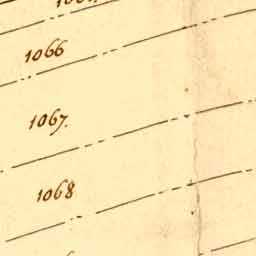 1066
1067.
1068